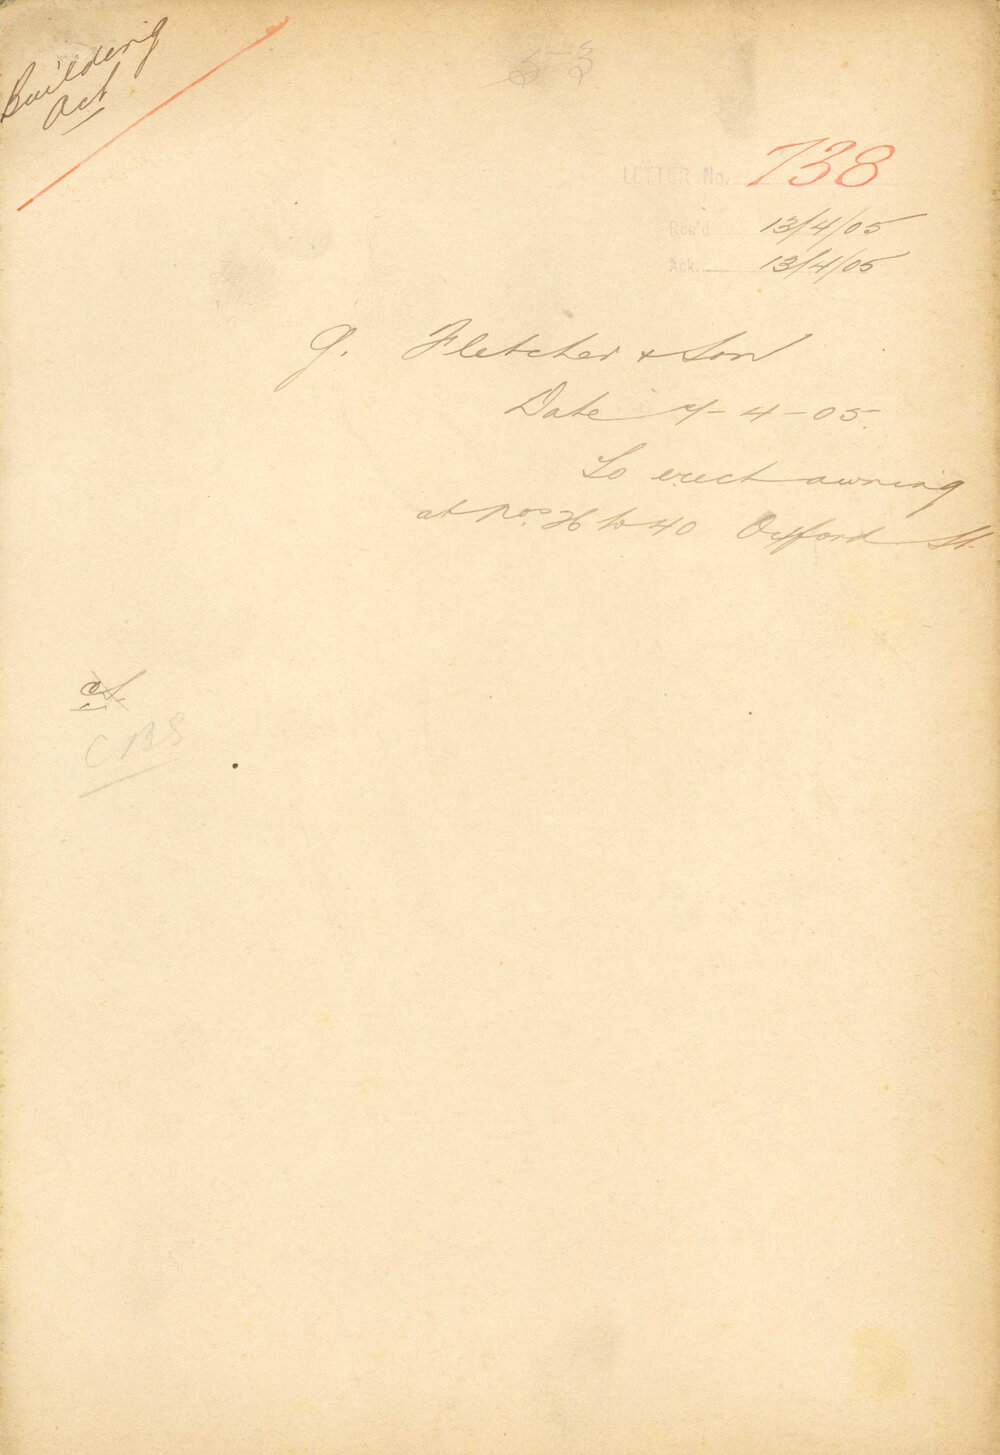 Building
Act
LETTER No. 738
Rec'd 13/4/05
Ack. 13/4/05
G. Fletcher & Son
Date 7-4-05.
To erect awning
at Nos. 26 to 40 Oxford St.
CBS